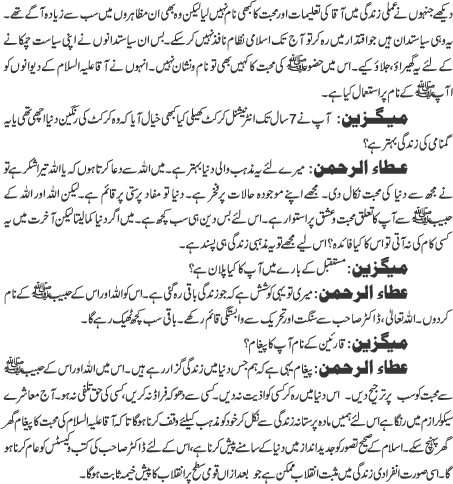 دیکھے جنہوں نے عملی زندگی میں آقا کی تعلیمات اور محبت کا کبھی نام نہیں لیا لیکن وہ بھی ان مظاہروں میں سب سے زیادہ آگے تھے۔
یہ وہی سیاستدان ہیں جو اقتدار میں رہ کر تو آج تک اسلامی نظام نافذ نہیں کر سکے۔ بس ان سیاستدانوں نے اپنی سیاست چمکانے
کے لئے یہ گھیراؤ، جلاؤ کیے۔ اس میں حضور ﷺ کی محبت کا کہیں بھی تو نام و نشان نہیں۔ انہوں نے آقا علیہ السلام کے دیوانوں کو
آپ ﷺ کے نام پر استعمال کیا ہے۔
میگزین: آپ نے 7 سال تک انٹرنیشنل کرکٹ کھیلی کیا کبھی خیال آیا کہ وہ کرکٹ کی رنگین دنیا اچھی تھی یا یہ
گمنامی کی زندگی بہتر ہے؟
عطاء الرحمن: میرے لئے یہ مذہب والی دنیا بہتر ہے۔ میں اللہ سے دعا کرتا ہوں کہ یا اللہ تیرا شکر ہے تو
نے مجھ سے دنیا کی محبت نکال دی۔ مجھے اپنے موجودہ حالات پر فخر ہے۔ دنیا تو مفاد پرستی پر قائم ہے۔ لیکن اللہ اور اللہ کے
حبیب ﷺ سے آپ کا تعلق محبت و عشق پر استوار ہے۔ اس لئے بس دین ہی سب کچھ ہے۔ میں اگر دنیا کما لیتا لیکن آخرت میں یہ
کسی کام کی نہ آتی تو اس کا کیا فائدہ؟ اس لیے مجھے تو یہ مذہبی زندگی ہی پسند ہے۔
میگزین: مستقبل کے بارے میں آپ کا کیا پلان ہے؟
عطاء الرحمن: میری تو یہی کوشش ہے کہ جو زندگی باقی رہ گئی ہے۔ اس کو اللہ اور اس کے حبیب ﷺ کے نام
کردوں۔ اللہ تعالیٰ، ڈاکٹر صاحب سے سنگت اور تحریک سے وابستگی قائم رکھے۔ باقی سب کچھ ٹھیک رہے گا۔
میگزین: قارئین کے نام آپ کا پیغام؟
عطاء الرحمن: پیغام یہی ہے کہ ہم جس دنیا میں زندگی گزار رہے ہیں۔ اس میں اللہ اور اس کے حبیب ﷺ
سے محبت کو سب پر ترجیح دیں۔ اس دنیا میں رہ کر کسی کو اذیت نہ دیں۔ کسی سے دھوکہ فراڈ نہ کریں، کسی کی حق تلفی نہ ہو۔ آج معاشرے
سیکولرازم میں رنگا ہے اس لئے ہمیں مادہ پرستانہ سے زندگی سے نکل کر خود کو مذہب کیلئے وقف کرنا ہوگا تاکہ آقا علیہ السلام کی محبت کا پیغام گھر
گھر پہنچ سکے۔ اسلام کے صحیح تصور کو جدید انداز میں دنیا کے سامنے پیش کرنا ہے، اس کے لئے ڈاکٹر صاحب کی کتب، کیسٹس کو عام کرنا ہوگا
اسی صورت انفرادی زندگی میں مثبت انقلاب ممکن ہے جو بعد ازاں قومی سطح پر انقلاب کا پیش خیمہ ثابت ہوگا۔